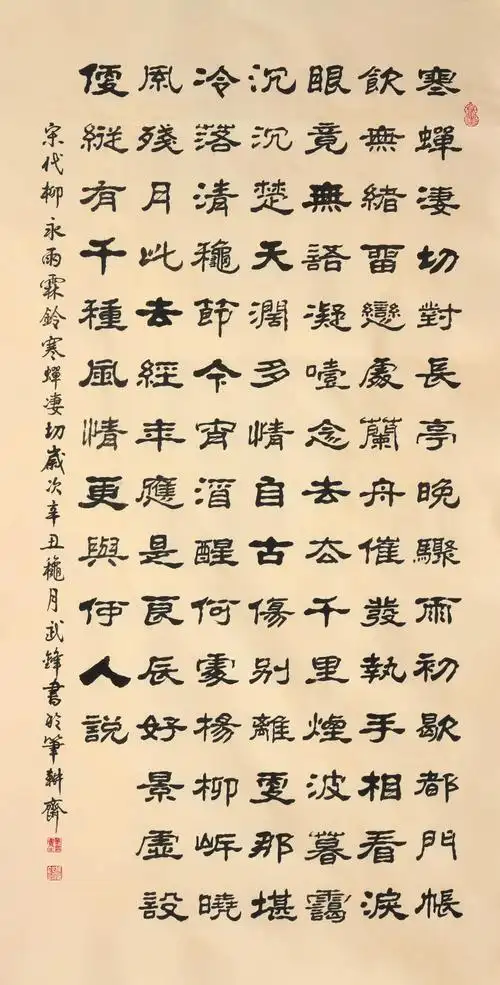 寒蟬凄切對長亭晚驟雨初歇都門帳
飲無緒畱戀處蘭舟催發執手相看淚
眼竟無語凝噎念去去千里煙波暮靄
沉沉楚天濶多情自古傷別離更那堪
冷落清龝節今宵酒醒何處楊柳岸曉
風殘月此去經年應是良辰好景虛設
便縱有千種風情更與伊人說
宋代柳永雨霖鈴寒蟬凄切歲次辛丑龝月武鋒書於筆耕齋